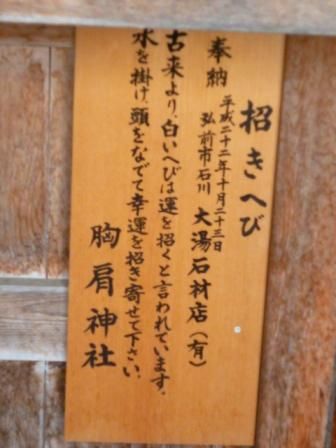 招きへび
奉納
平成二十二年十月二十三日
弘前市石川 大湯石材店(有)
古来より、白いへびは運を招くと言われています。
水を掛け、頭をなでて幸運を招き寄せて下さい。
胸肩神社